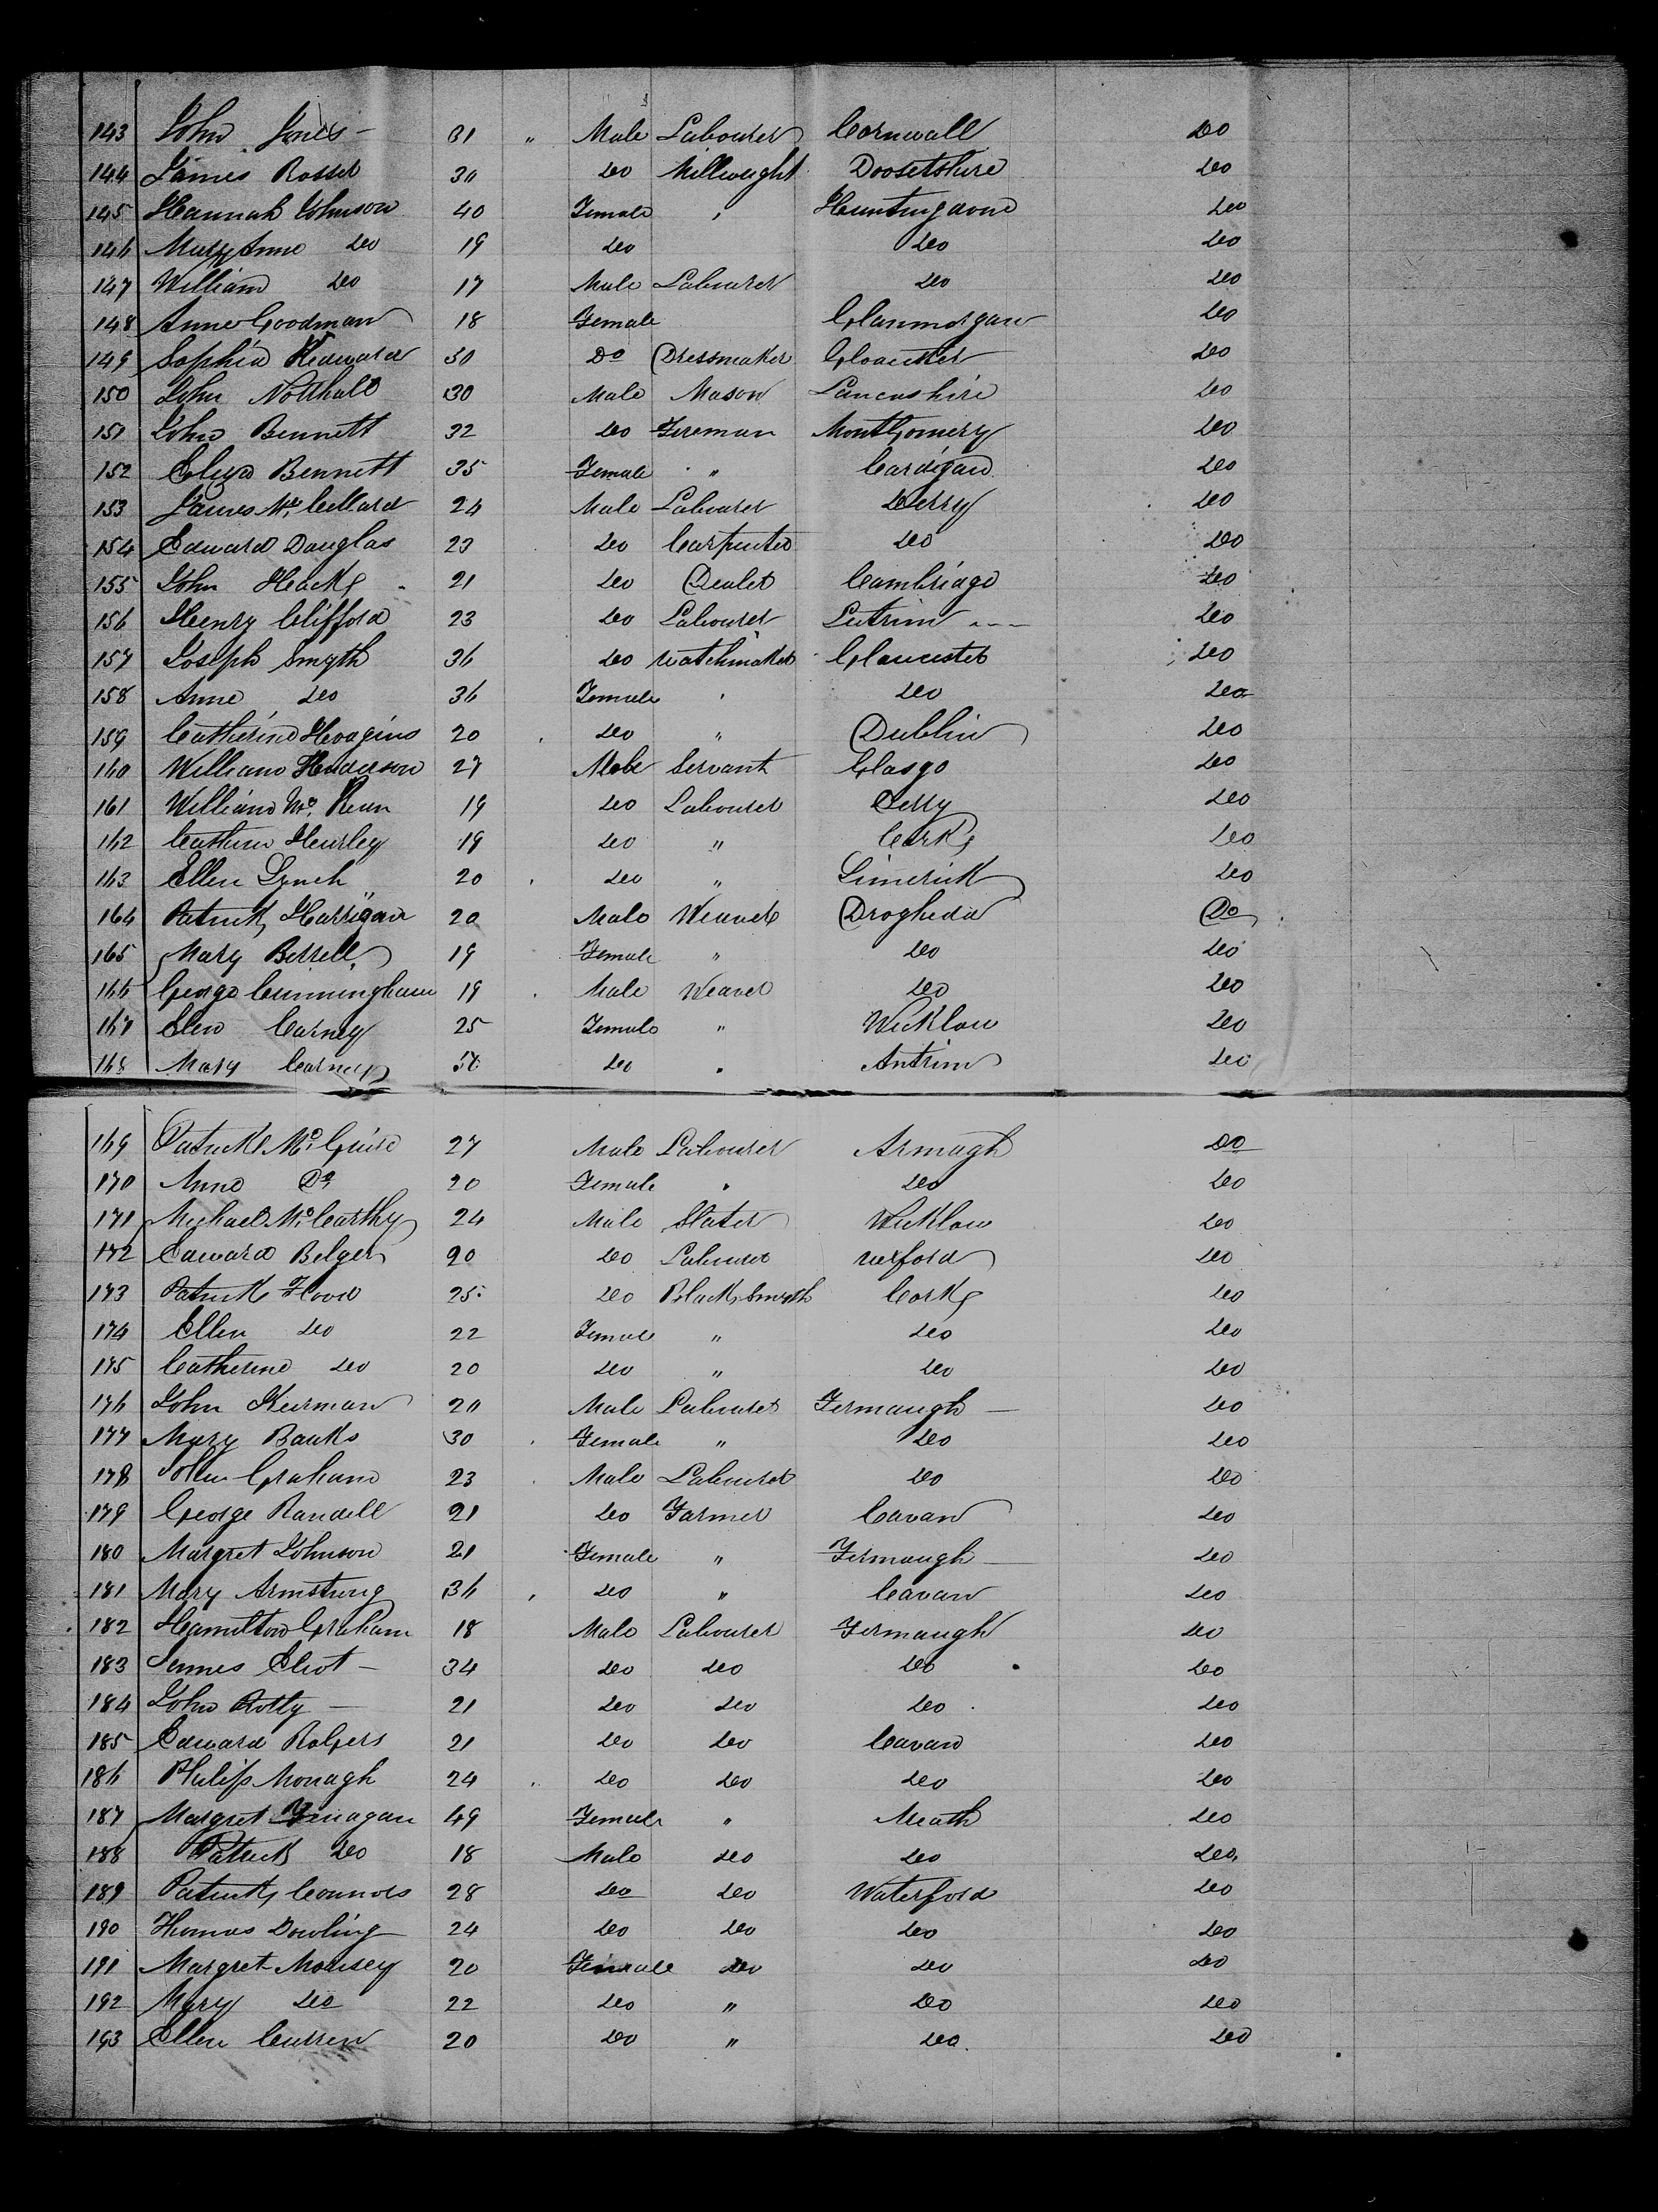 143 John Jones - 31 " Male Labourer Cornwall Do
144 James Rosser 30 Do Millwright Doosetshire Do
145 Hannah Johnson 40 Female " Huntingdone Do
146 Mary Anne Do 19 Do Do Do
147 William Do 17 Male Labourer Do Do
148 Anne Goodman 18 Female Glanmorgan Do
149 Sophia 30 Do Dressmaker Do
150 John Notthall 30 Male Mason Lancashire Do
151 John Bennett 32 Do Fireman Montgomery Do
152 Eliza Bennett 35 Female " Cardigan Do
153 James Mc. Cellard 24 Male Labourer Derry Do
154 Edward Douglas 23 Do Carpinter Do Do
155 John Hack 21 Do Dealer Cambridge Do
156 Henry Clifford 23 Do Labourer Leitrim Do
157 Joseph Smyth 36 Do Watchmaker Glaucester Do
158 Anne Do 36 Female " Do Do
159 Catherine Hodgins 20 Do " Dublin Do
160 William Henderson 27 Male Servant Glasgo Do
161 William Mc. Kean 19 Do Labourer Derry Do
162 Heurley 19 Do " Cork Do
163 Ellen Lynch 20 Do " Limerick Do
164 Patrick Harrigan 20 Male Weaver Drogheda Do
165 Mary Berrell 19 Female " Do Do
166 George Cunningham 19 Male Weaver Do Do
167 Elen Carney 25 Female " Wicklow Do
168 Mary Carney 50 Do " Antrim Do
169 Patrick Mc. Guire 27 Male Labourer Armagh Do
170 Anne Do 20 Female " Do Do
171 Michael Mc. Carthy 24 Male Slater Wicklow Do
172 Edward Belger 20 Do Labourer Wexford Do
173 Patrick Flood 25 Do Black Smyth Cork Do
174 Ellen Do 22 Female " Do Do
175 Catherine Do 20 Do " Do Do
176 John Keirnan 20 Male Labourer Fermaugh - Do
177 Mary Banks 30 Female " Do Do
178 John Graham 23 Male Labourer Do Do
179 George Randell 21 Do Farmer Cavan Do
180 Margret Johnson 21 Female " Fermaugh - Do
181 Mary Armstrung 36 Do " Cavan Do
182 Hamilton Graham 18 Male Labourer Fermaugh Do
183 James Eliot - 34 Do Do Do Do
184 John - 21 Do Do Do Do
185 Edward Rogers 21 Do Do Cavan Do
186 Philip Monagh 24 Do Do Do Do
187 Margret Finagan 49 Female " Meath Do
188 Patrick Do 18 Male Do Do Do
189 Patrick Connors 28 Do Do Waterford Do
190 Thomas Dowling 24 Do Do Do Do
191 Margret Morisey 20 Female Do Do Do
192 Mary Do 22 Do " Do Do
193 Ellen Curren 20 Do " Do Do